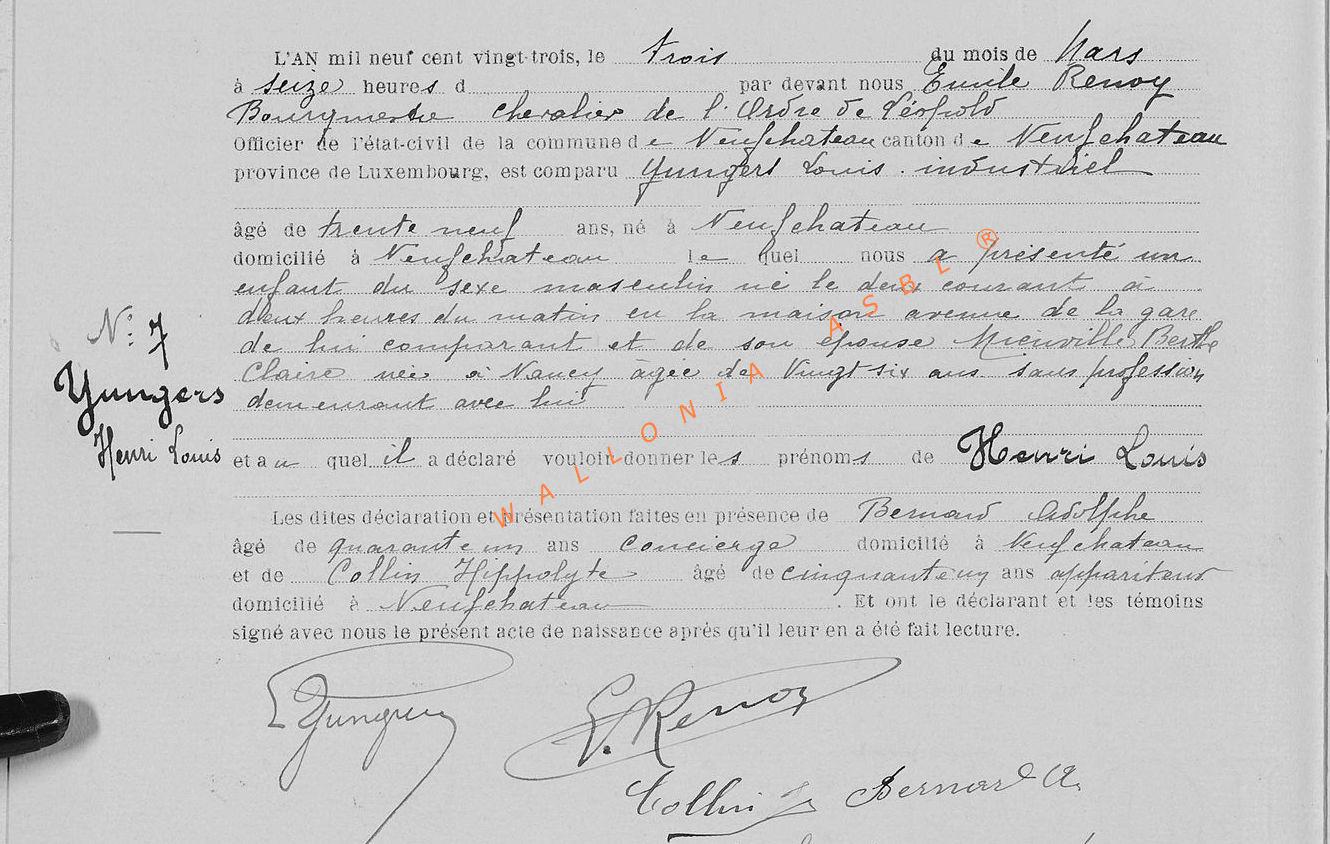 L'AN mil neuf cent vingt-trois, le trois du mois de Mars
à seize heures d par devant nous Emile Renoy
Bourgmestre Chevalier de l'Ordre de Léopold
Officier de l'état-civil de la commune de Neufchateau canton de Neufchateau
province de Luxembourg, est comparu Yungers Louis . industriel
âgé de trente neuf ans, né à Neufchateau
domicilié à Neufchateau le quel nous a présenté un
enfant du sexe masculin né le deux courant à
deux heures du matin en la maison avenue de la gare
de lui comparant et de son épouse Mienville Berthe
Claire née à Nancy âgée de Vingt six ans sans profession
demeurant avec lui
N° 7
Yungers
Henri Louis
et au quel il a déclaré vouloir donner les prénoms de Henri Louis
Les dites déclaration et présentation faites en présence de Bernard Adolphe
âgé de quarante un ans concierge domicilié à Neufchateau
et de Collin Hippolyte âgé de cinquante un ans appariteur
domicilié à Neufchateau . Et ont le déclarant et les témoins
signé avec nous le présent acte de naissance après qu'il leur en a été fait lecture.
L Yungers
E. Renoy
Collin Bernard A.
WALLONIA ASBL ®